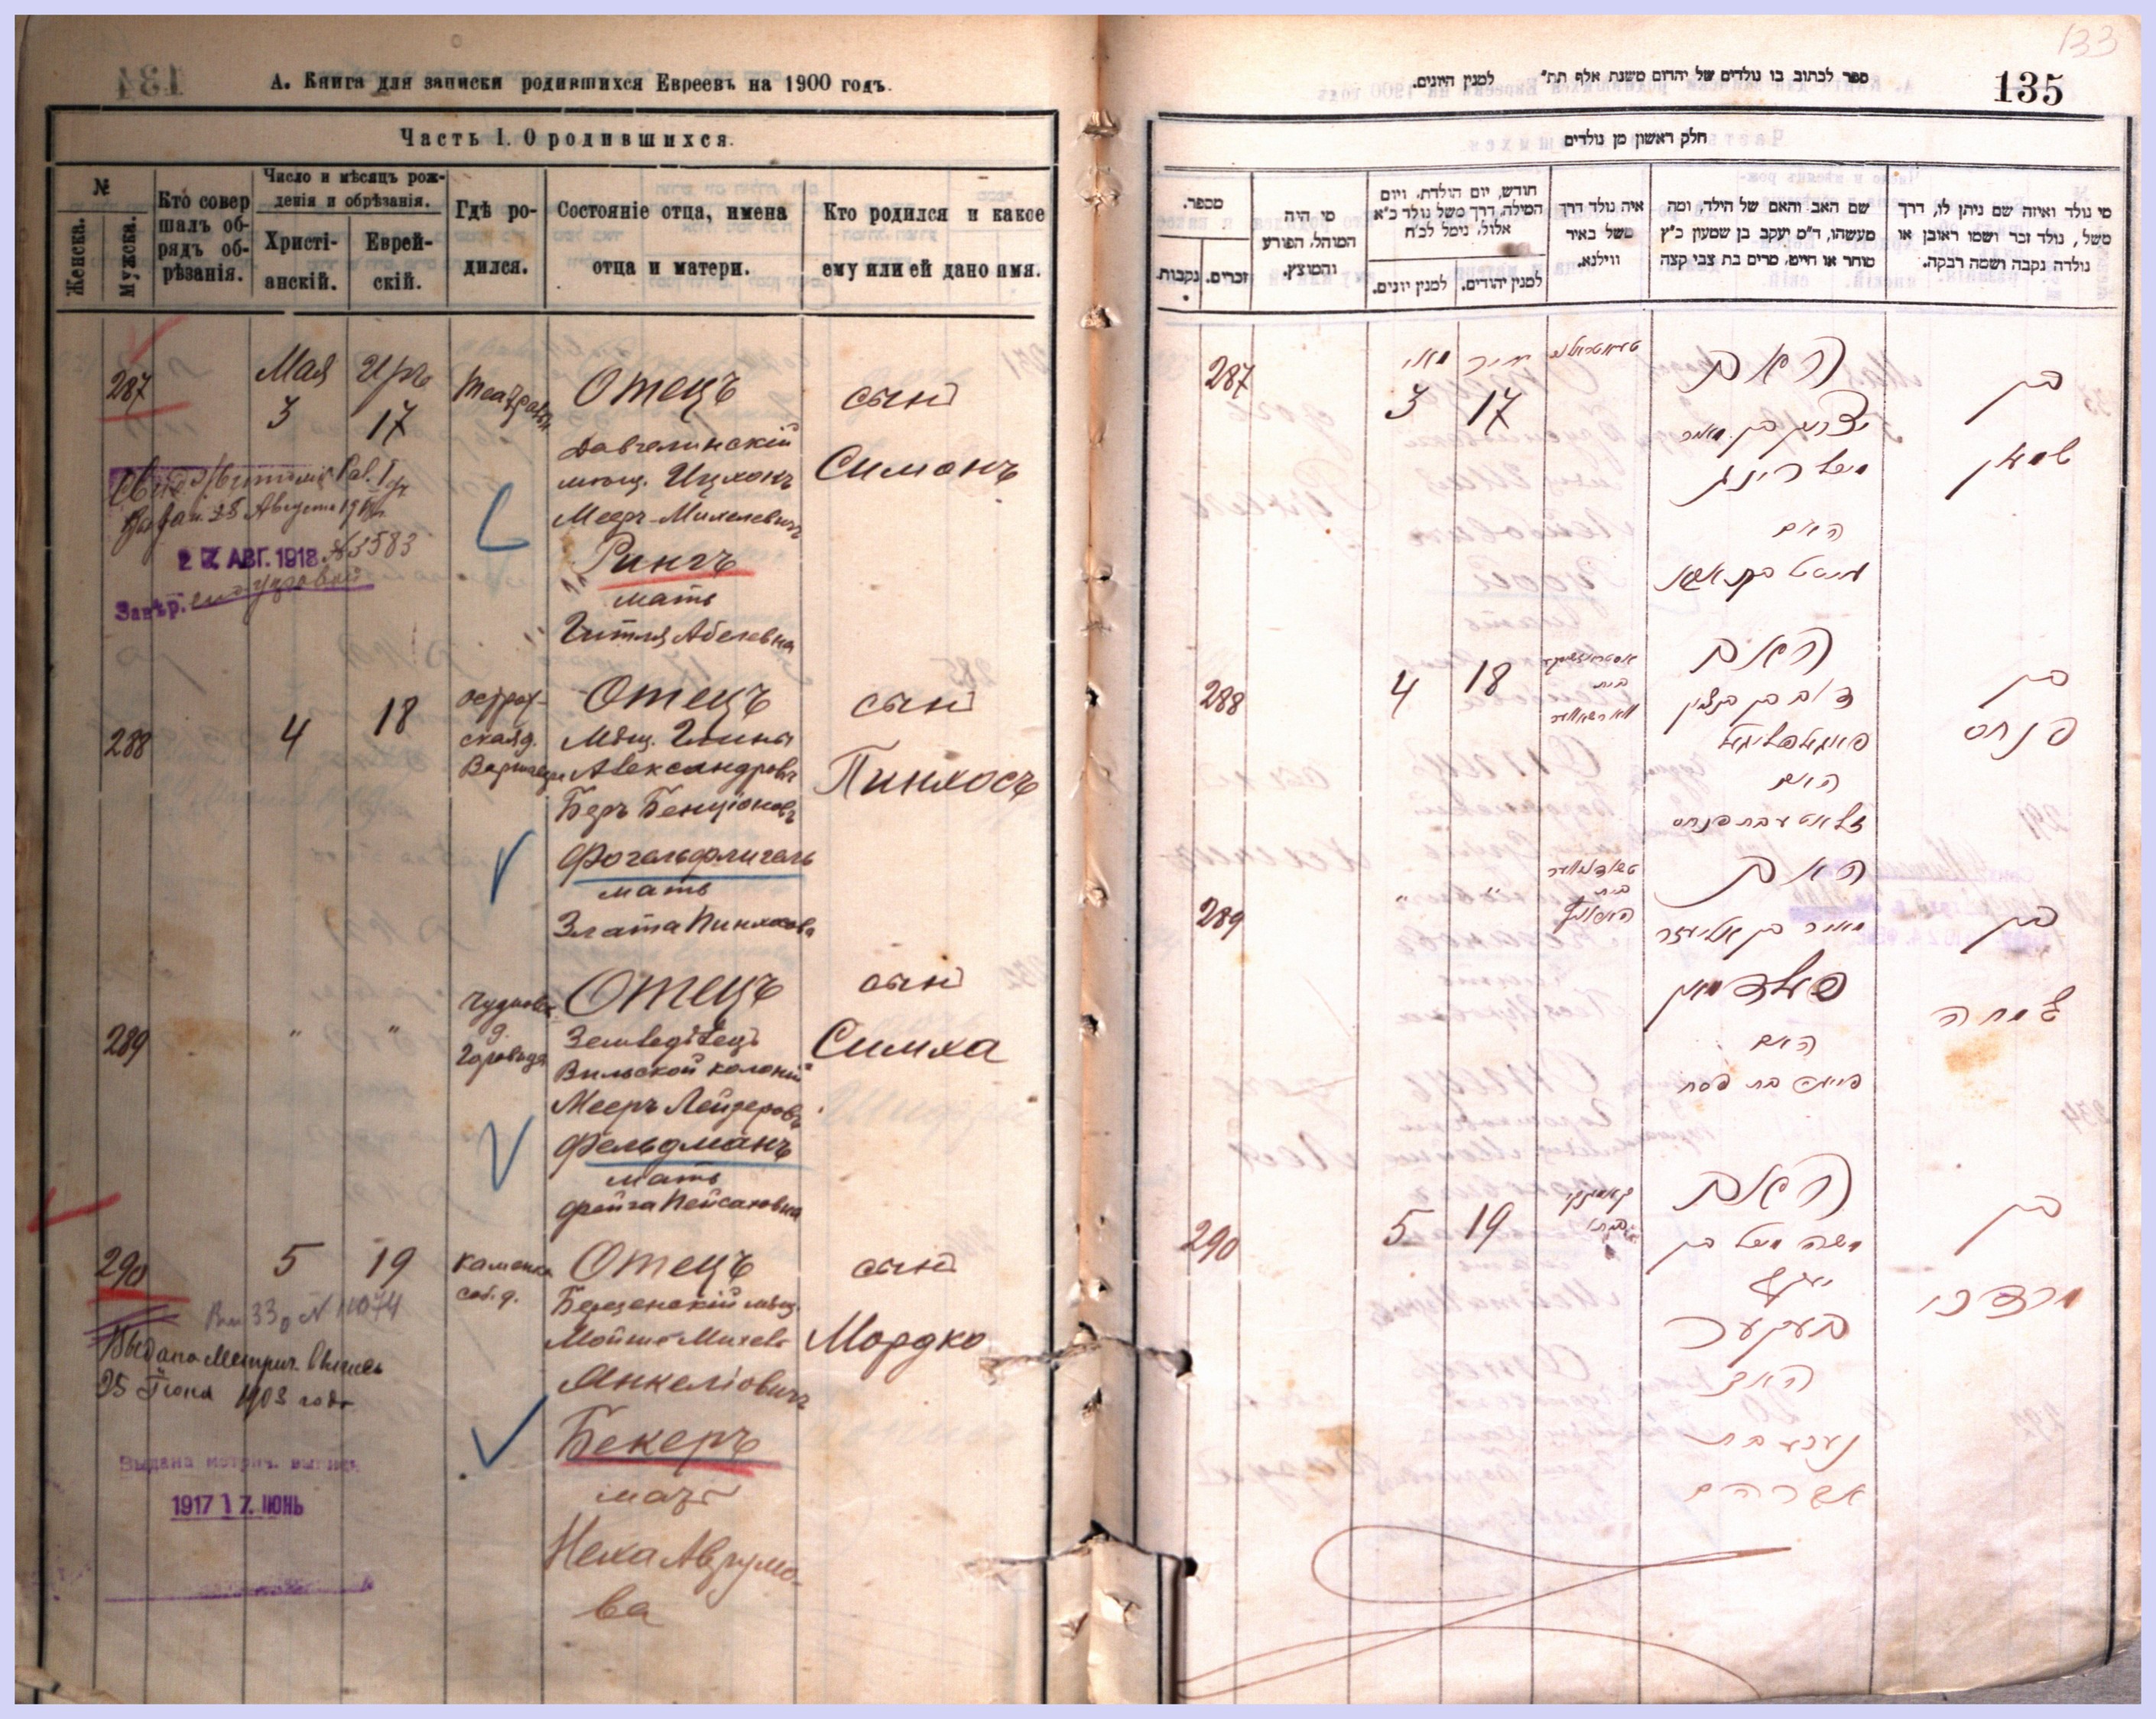 А. Книга для записки родившихся Евреевъ на 1900 годъ.
Часть I. О родившихся.
№
Женска.
Мужска.
Кто совер
шалъ об-
рядъ об-
рѣзанія.
Число и мѣсяцъ рож-
денія и обрѣзанія.
Христі-
анскій.
Еврей-
скій.
Гдѣ ро-
дился.
Состояніе отца, имена
отца и матери.
Кто родился и какое
ему или ей дано имя.
287
Мая
3
Иръ
17
Отецъ
мѣщ. Ицхокъ
Мееръ-Михелевичъ
Рингъ
мать
Гитля Абелевна
сынъ
Симонъ
28 Августа
2 7. АВГ. 1918.
№ 3583
Завѣр.
288
4
18
остров-
ская д.
Отецъ
Мѣщ.
Александровъ
Беръ Бенціоновъ
Фогельфлигель
мать
Злата Пинхосова
сынъ
Пинхосъ
289
"
"
д.
Отецъ
Земледѣлецъ
Вильской колоніи
Мееръ Лейзеровъ
Фельдманъ
мать
Фейга Пейсаховна
сынъ
Симха
290
5
19
соб. д.
Отецъ
Березенскій мѣщ.
Мойше Михель
Янкеліовичъ
Бекеръ
мать
Неха Аврумо-
ва
сынъ
Мордко
Выдана Метрич. Выпись
25 Іюня 1903 года
Выдана метрич. выпись
1917 17. ІЮНЬ
133
135
ספר לכתוב בו נולדים של יהדום משנת אלף תת״ למנין היונים.
חלק ראשון מן נולדים
מספר.
זכרים.
נקבות.
מי היה
המוהל, הפורע
והמוצץ.
חודש, יום הולדת, ויום
המילה, דרך משל נולד כ״א
אלול, נימל לכ״ח
למנין יונים.
למנין יהודים.
איה נולד דרך
משל באיר
ווילנא.
שם האב והאם של הילד, ומה
מעשהו, ד״מ יעקב בן שמעון כ״ץ
סוחר או חייט, מרים בת צבי קצה
מי נולד ואיזה שם ניתן לו, דרך
משל, נולד זכר ושמו ראובן או
נולדה נקבה ושמה רבקה.
287
מאי
3
אייר
17
האב
יצחק בן מאיר
מיכל רינג
האם
בן
שמעון
288
4
18
האב
דוב בן בנציון
פאגעלפליגעל
האם
זלאטע בת פנחס
בן
פנחס
289
"
"
האב
מאיר בן אליעזר
פעלדמאן
האם
פייגא בת פסח
בן
שמחה
290
5
19
האב
משה מיכל בן
יעקב
בעקער
האם
נעכע בת
אברהם
בן
מרדכי